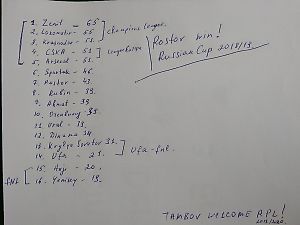 1. Zenit - 65
2. Lokomotiv - 55
3. Krasnodar - 51
Champions League.
4. CSKA - 51
5. Arsenal - 51
6. Spartak - 46
7. Rostov - 43
8. Rubin - 39
9. Akhmat - 39
10. Orenburg - 39
11. Ural - 39
12. Dinamo 34
13. Krylya Sovetov 31
14. Ufa - 21.
Ufa-fnl.
15. Anji - 20
FNL
16. Yenisey - 19.
Rostov win!
Russian Cup 2018/19
TAMBOV WELCOME RPL!